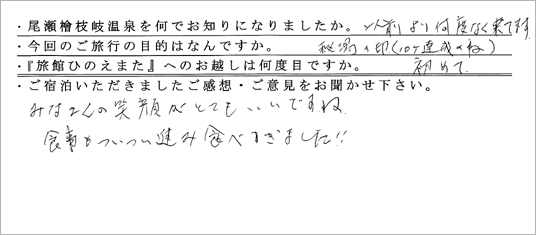 ・尾瀬檜枝岐温泉を何でお知りになりましたか。 以前より何度なく来てます
・今回のご旅行の目的はなんですか。 秘湯の印(10ヶ達成の為)
・『旅館ひのえまた』へのお越しは何度目ですか。 初めて
・ご宿泊いただきましたご感想・ご意見をお聞かせ下さい。
みなさんの笑顔がとてもいいですね
食事もついつい進み食べすぎました!!